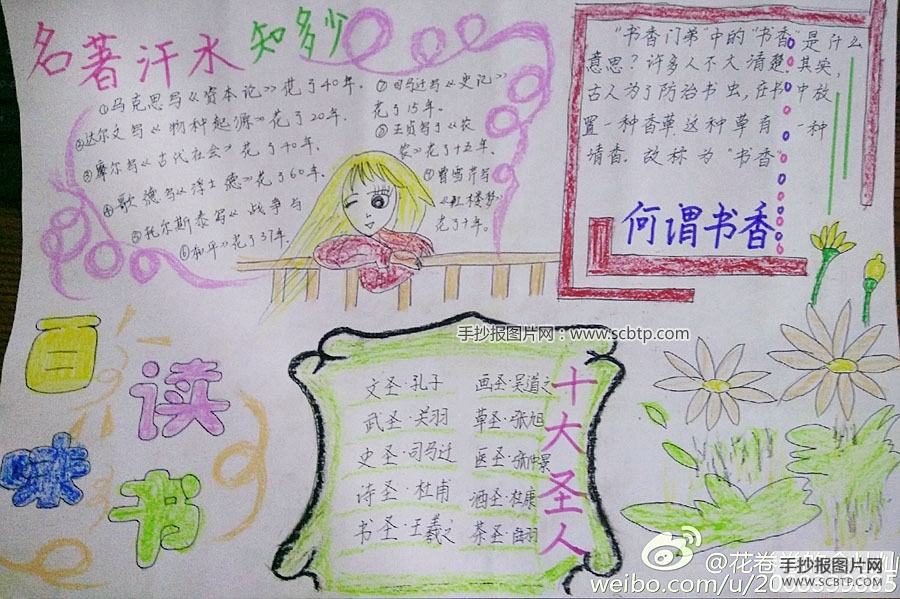 名著汗水知多少
①马克思写《资本论》花了40年.
②达尔文写《物种起源》花了20年.
③摩尔写《古代社会》花了40年.
④歌德写《浮士德》花了60年.
⑤托尔斯泰写《战争与
⑥和平》花了37年.
⑦司马迁写《史记》
花了15年。
⑧王祯写了《农
农》花了十五年。
⑨曹雪芹写
《红楼梦》
花了十年。
"书香门弟"中的"书香"是什么
意思?许多人不大清楚.其实,
古人为了防治书虫,在书中放
置一种香草这种草有一种
清香.故称为"书香"
何谓书香
百味读书
手抄报图片网：www.scbtp.com
十大圣人
文圣·孔子
武圣·关羽
史圣·司马迁
诗圣·杜甫
书圣·王羲之
画圣·吴道之
草圣·张旭
医圣·张仲景
酒圣·杜康
茶圣·陆羽
手抄报图片网
WWW.SCBTP.COM